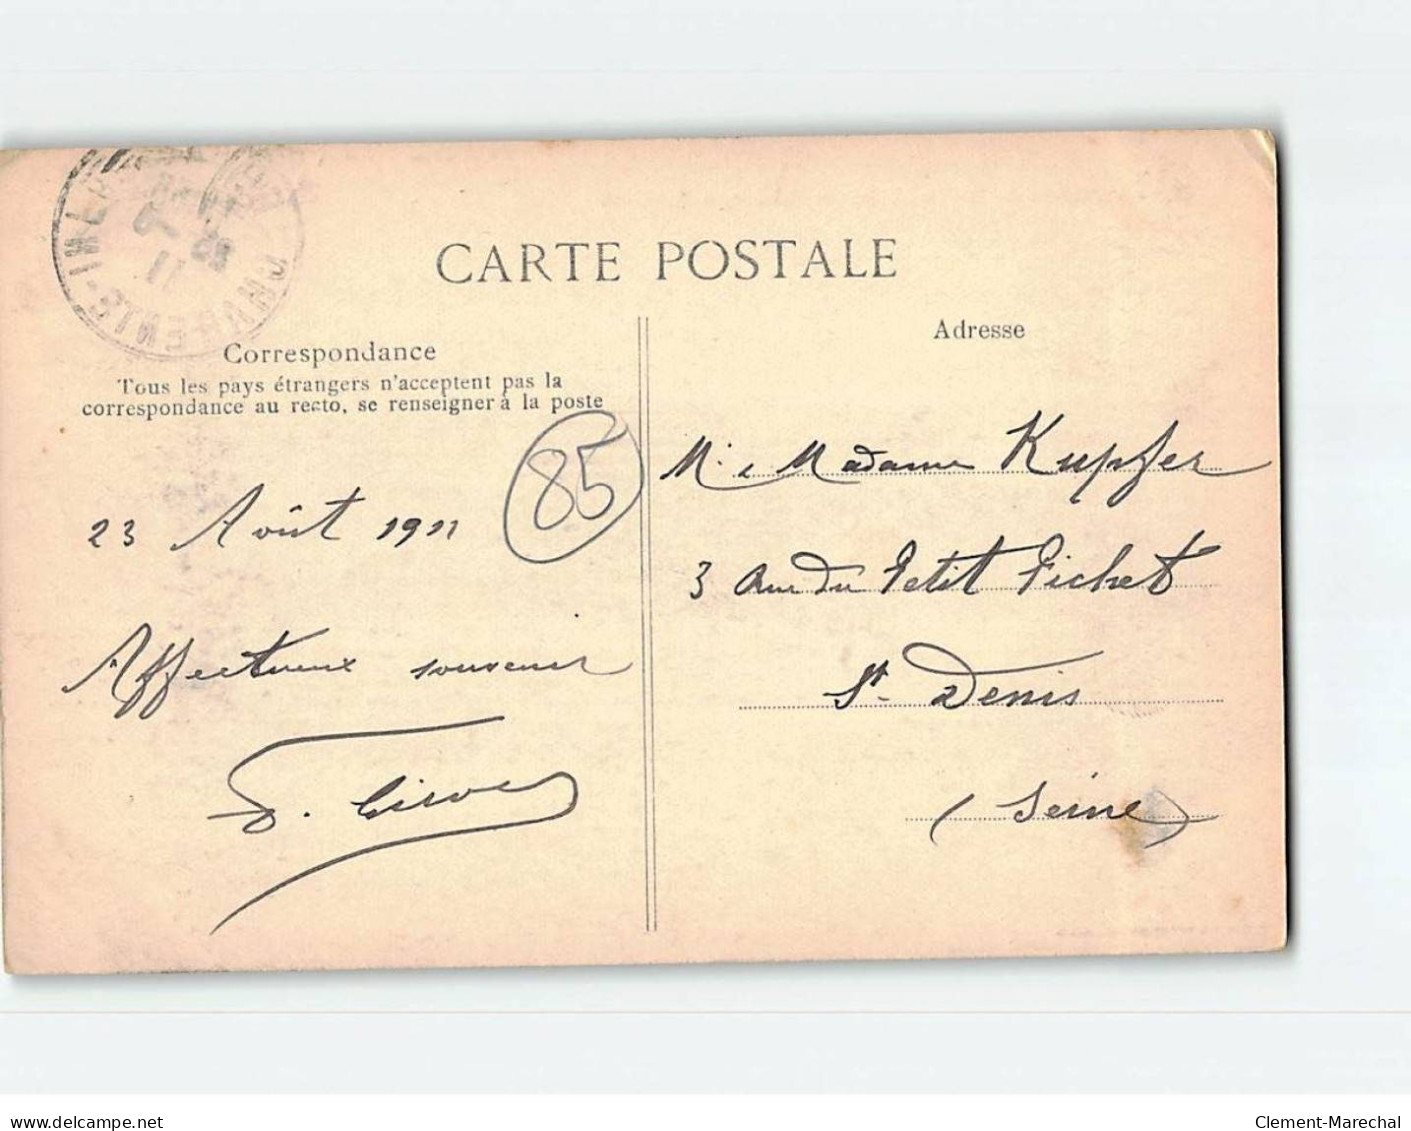 CARTE POSTALE
Correspondance
Tous les pays étrangers n'acceptent pas la
correspondance au recto, se renseigner à la poste
Adresse
85
23 Août 1911
Affectueux souvenir
M. & Madame Kupfer
3 Rue du Petit Pichet
St. Denis
(Seine)
www.delcampe.net
Clement-Marechal